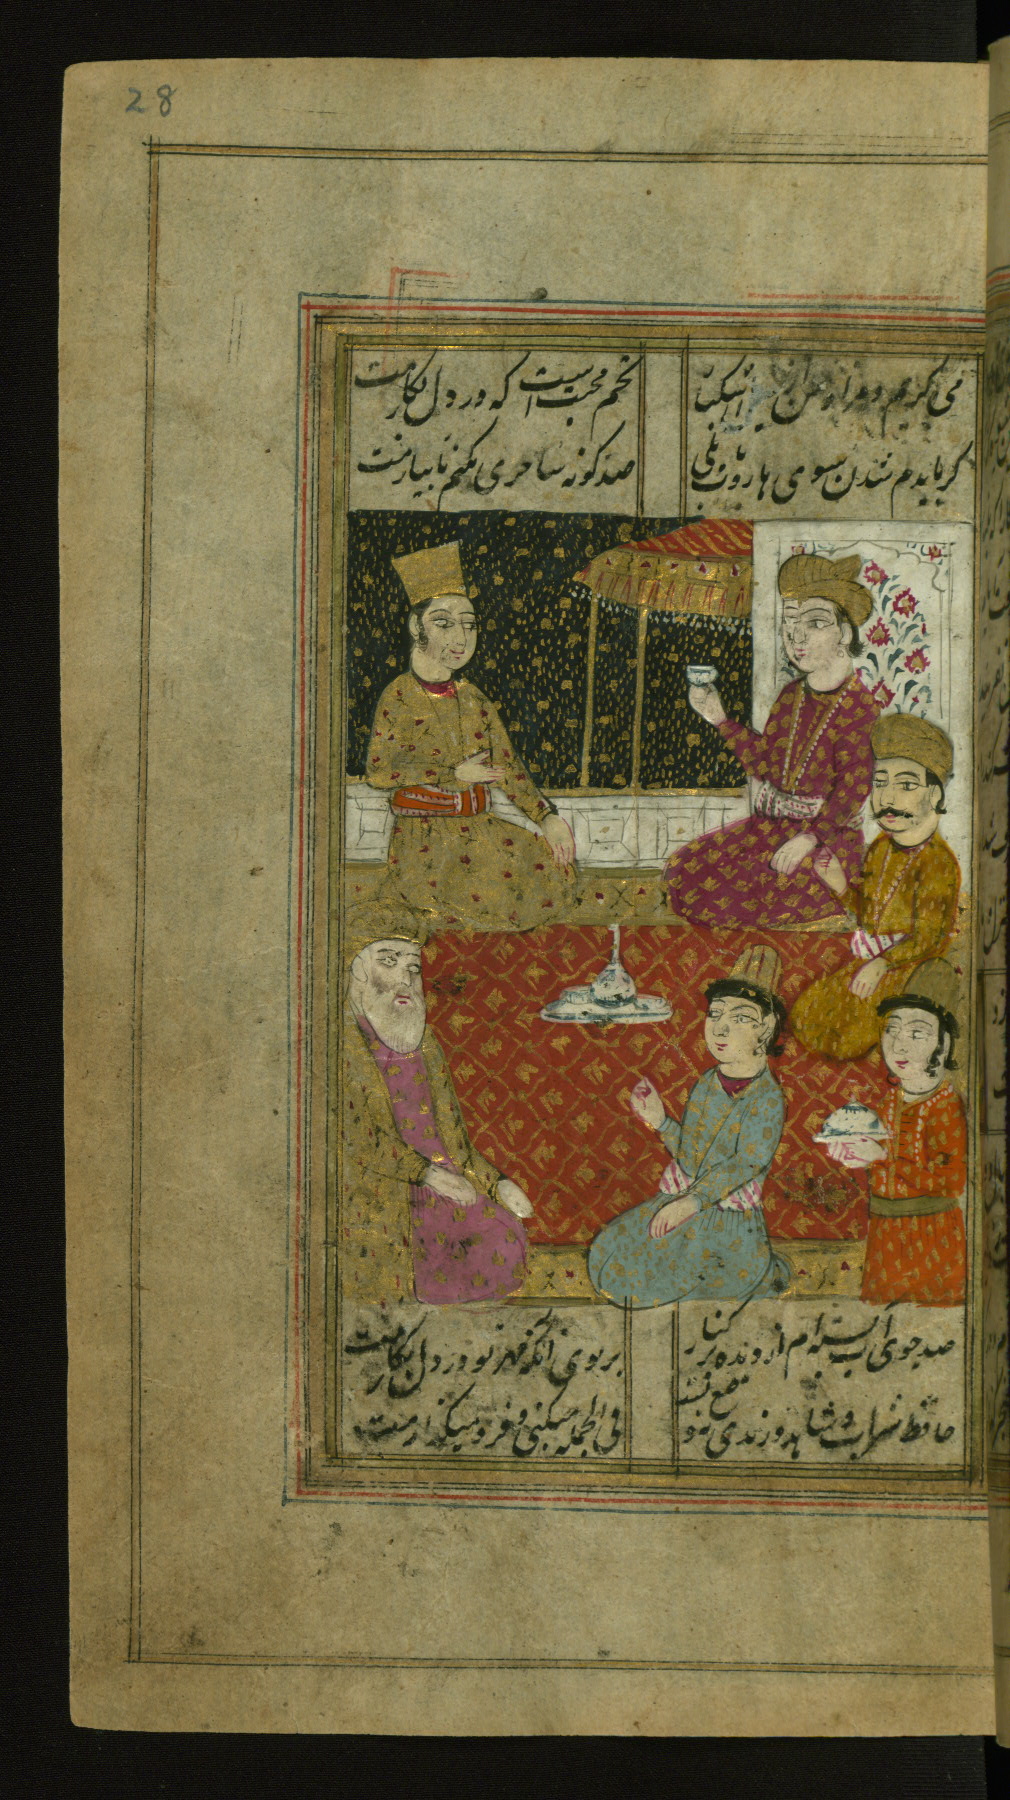 28
می کریم و مراد من اشکبار
تخم محبت است که در دل بکارمت
کر بایدم شدن سوی هاروت بابلی
صد کونه ساحری بکنم تا بیارمت
صد جوی آب بسته ام از دیده بر کنار
بر بوی آنکه مهر تو در دل بکارمت
حافظ شراب و شاهد و رندی نه وضع تست
فی الجمله میکنی و فرو میکذارمت